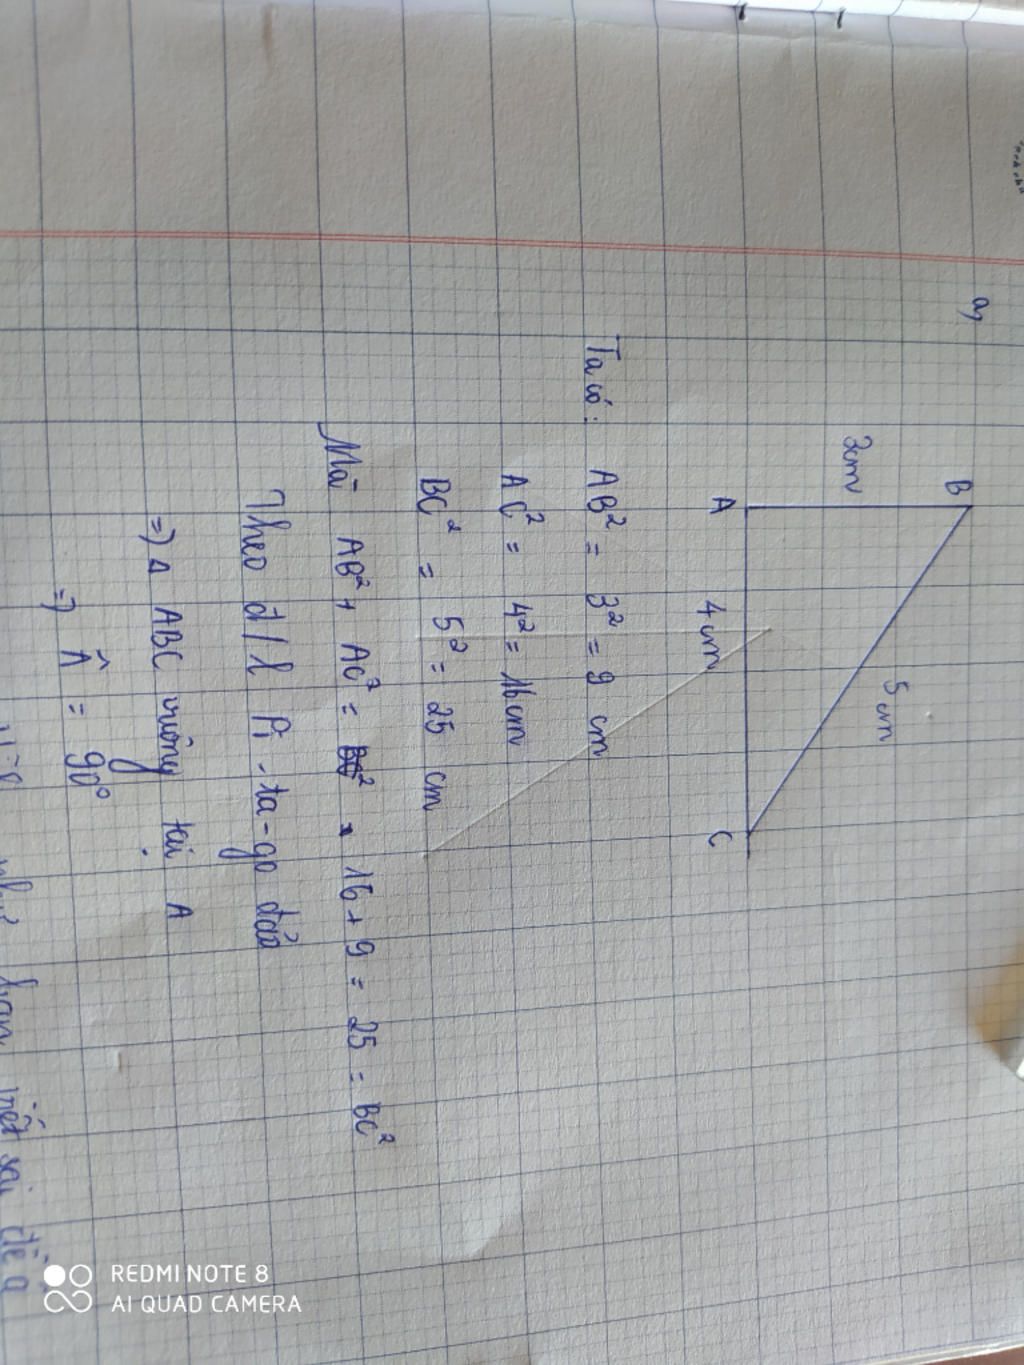 a,
B
3cm
5 cm
A
4 cm
C
Ta có: AB² = 3² = 9 cm
AC² = 4² = 16 cm
BC² = 5² = 25 cm
Mà AB² + AC² = 16 + 9 = 25 = BC²
Theo đ/l Pi-ta-go đảo
=> Δ ABC vuông tại A
=> Â = 90°
bạn viết sai đề ạ
REDMI NOTE 8
AI QUAD CAMERA